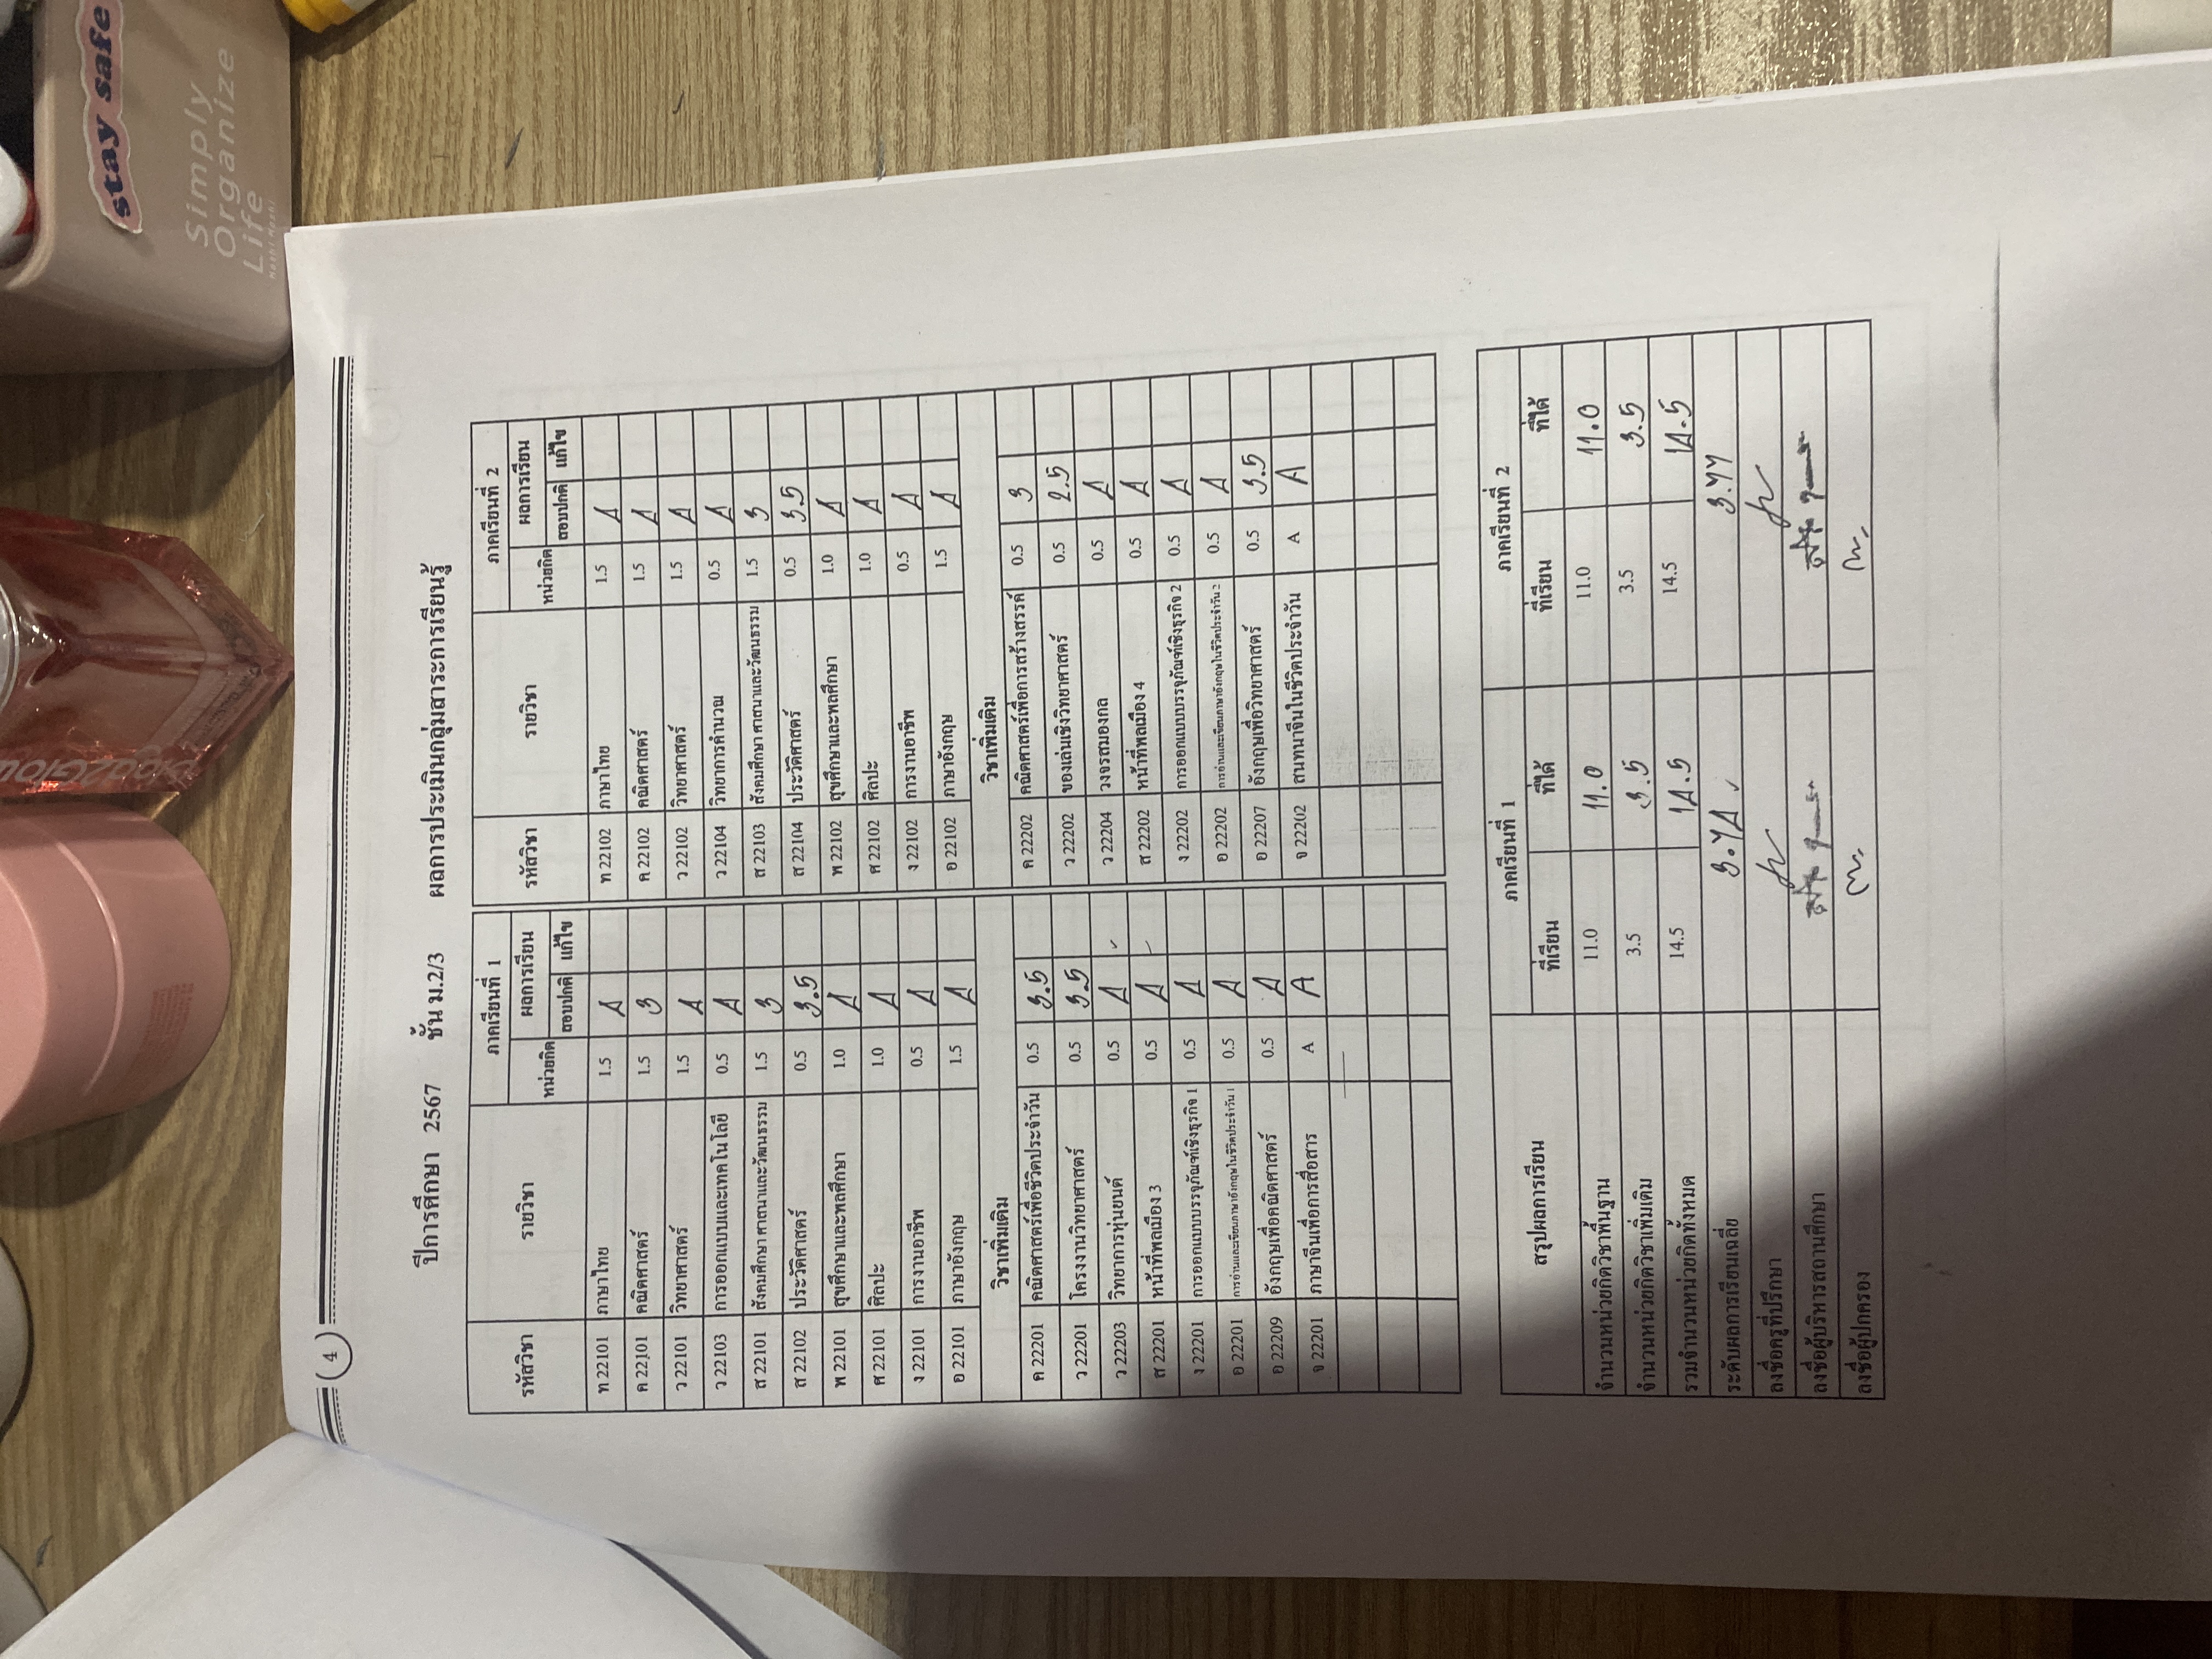 stay safe
Simply
Organize
Life
4
ปีการศึกษา 2567 ชั้น ม.2/3 ผลการประเมินกลุ่มสาระการเรียนรู้
รหัสวิชา รายวิชา ภาคเรียนที่ 1 รหัสวิชา รายวิชา ภาคเรียนที่ 2
หน่วยกิต ผลการเรียน หน่วยกิต ผลการเรียน
สอบปกติ แก้ไข สอบปกติ แก้ไข
ท 22101 ภาษาไทย 1.5 4 ท 22102 ภาษาไทย 1.5 4
ค 22101 คณิตศาสตร์ 1.5 3 ค 22102 คณิตศาสตร์ 1.5 4
ว 22101 วิทยาศาสตร์ 1.5 4 ว 22102 วิทยาศาสตร์ 1.5 4
ว 22103 การออกแบบและเทคโนโลยี 0.5 4 ว 22104 วิทยาการคำนวณ 0.5 4
ส 22101 สังคมศึกษา ศาสนาและวัฒนธรรม 1.5 3 ส 22103 สังคมศึกษา ศาสนาและวัฒนธรรม 1.5 3
ส 22102 ประวัติศาสตร์ 0.5 3.5 ส 22104 ประวัติศาสตร์ 0.5 3.5
พ 22101 สุขศึกษาและพลศึกษา 1.0 4 พ 22102 สุขศึกษาและพลศึกษา 1.0 4
ศ 22101 ศิลปะ 1.0 4 ศ 22102 ศิลปะ 1.0 4
ง 22101 การงานอาชีพ 0.5 4 ง 22102 การงานอาชีพ 0.5 4
อ 22101 ภาษาอังกฤษ 1.5 4 อ 22102 ภาษาอังกฤษ 1.5 4
วิชาเพิ่มเติม วิชาเพิ่มเติม
ค 22201 คณิตศาสตร์เพื่อชีวิตประจำวัน 0.5 3.5 ค 22202 คณิตศาสตร์เพื่อการสร้างสรรค์ 0.5 3
ว 22201 โครงงานวิทยาศาสตร์ 0.5 3.5 ว 22202 ของเล่นเชิงวิทยาศาสตร์ 0.5 2.5
ว 22203 วิทยาการหุ่นยนต์ 0.5 4 ว 22204 วงจรสมองกล 0.5 4
ส 22201 หน้าที่พลเมือง 3 0.5 4 ส 22202 หน้าที่พลเมือง 4 0.5 4
ง 22201 การออกแบบบรรจุภัณฑ์เชิงธุรกิจ 1 0.5 4 ง 22202 การออกแบบบรรจุภัณฑ์เชิงธุรกิจ 2 0.5 4
อ 22201 การอ่านและเขียนภาษาอังกฤษในชีวิตประจำวัน 1 0.5 4 อ 22202 การอ่านและเขียนภาษาอังกฤษในชีวิตประจำวัน 2 0.5 4
อ 22209 อังกฤษเพื่อคณิตศาสตร์ 0.5 4 อ 22207 อังกฤษเพื่อวิทยาศาสตร์ 0.5 3.5
จ 22201 ภาษาจีนเพื่อการสื่อสาร A A จ 22202 สนทนาจีนในชีวิตประจำวัน A A
สรุปผลการเรียน ภาคเรียนที่ 1 ภาคเรียนที่ 2
ที่เรียน ที่ได้ ที่เรียน ที่ได้
จำนวนหน่วยกิตวิชาพื้นฐาน 11.0 11.0 11.0 11.0
จำนวนหน่วยกิตวิชาเพิ่มเติม 3.5 3.5 3.5 3.5
รวมจำนวนหน่วยกิตทั้งหมด 14.5 14.5 14.5 14.5
ระดับผลการเรียนเฉลี่ย 3.74 3.77
ลงชื่อครูที่ปรึกษา
ลงชื่อผู้บริหารสถานศึกษา
ลงชื่อผู้ปกครอง